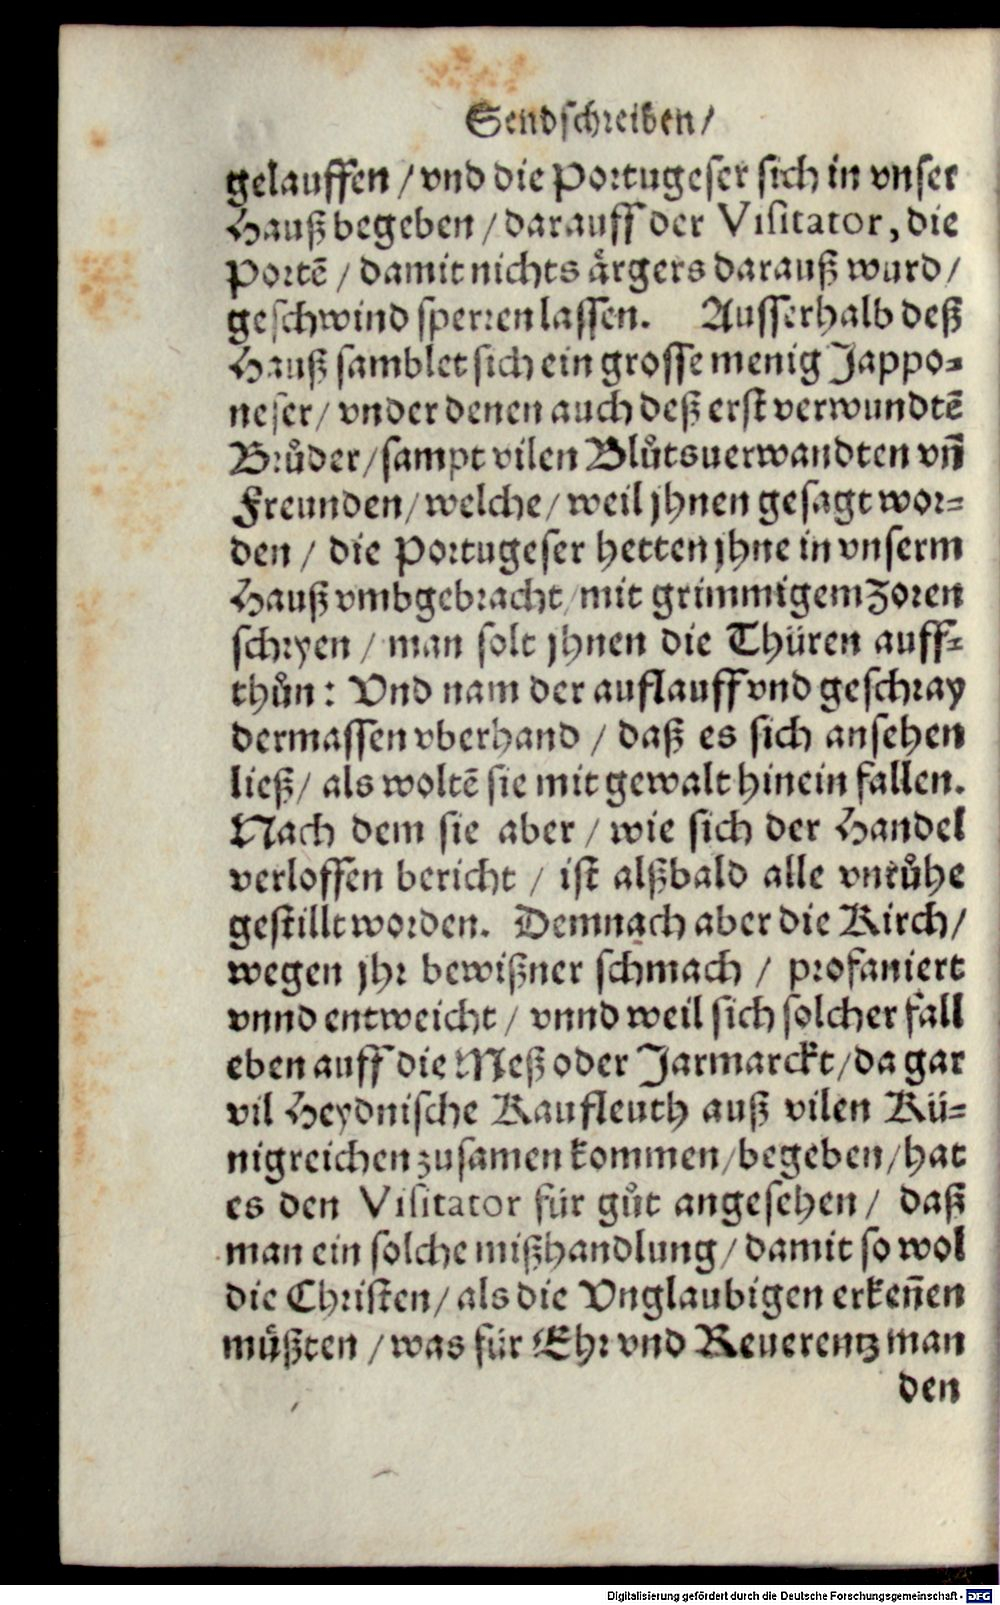 Sendschreiben/
gelauffen / vnd die Portugeser sich in vnser
Hauß begeben / darauff der Visitator, die
Portē / damit nichts ärgers darauß wurd /
geschwind sperren lassen. Ausserhalb deß
Hauß samblet sich ein grosse menig Jappo-
neser / vnder denen auch deß erst verwundtē
Brůder / sampt vilen Blůtsuerwandten vñ
Freunden / welche / weil jhnen gesagt wor-
den / die Portugeser hetten jhne in vnserm
Hauß vmbgebracht / mit grimmigem Zoren
schryen / man solt jhnen die Thüren auff-
thůn: Vnd nam der auflauff vnd geschray
dermassen vberhand / daß es sich ansehen
ließ / als woltē sie mit gewalt hinein fallen.
Nach dem sie aber / wie sich der Handel
verloffen bericht / ist alßbald alle vnrůhe
gestillt worden. Demnach aber die Kirch /
wegen jhr bewißner schmach / profaniert
vnnd entweicht / vnnd weil sich solcher fall
eben auff die Meß oder Jarmarckt / da gar
vil Heydnische Kaufleuth auß vilen Kü-
nigreichen zusamen kommen / begeben / hat
es den Visitator für gůt angesehen / daß
man ein solche mißhandlung / damit so wol
die Christen / als die Vnglaubigen erkeñen
můßten / was für Ehr vnd Reuerentz man
den
Digitalisierung gefördert durch die Deutsche Forschungsgemeinschaft - DFG